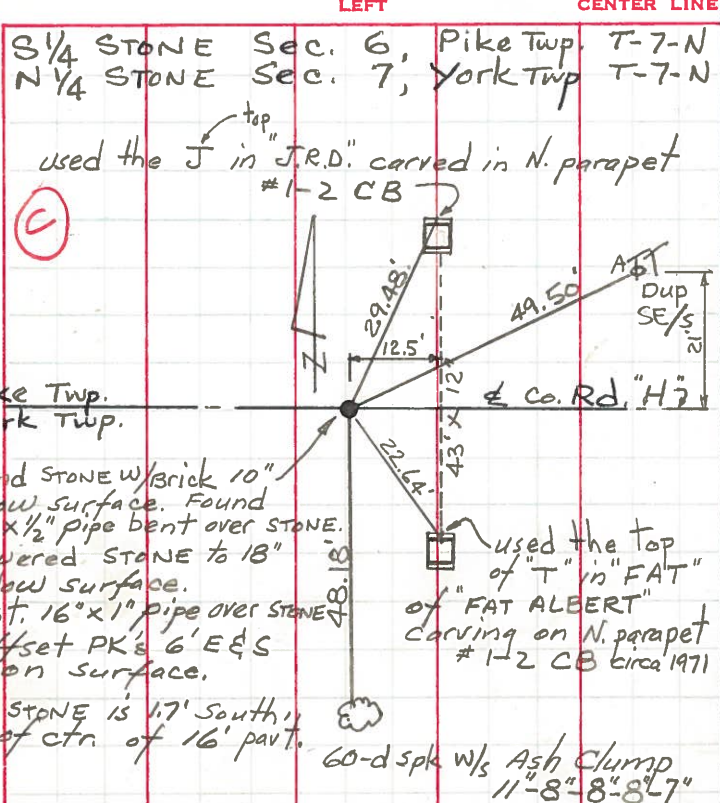 LEFT CENTER LINE
S 1/4 STONE Sec. 6, Pike Twp. T-7-N
N 1/4 STONE Sec. 7, York Twp T-7-N
top
used the J in "J.R.D." carved in N. parapet
#1-2 CB
C
29.48'
49.50'
Dup
SE/s
12'
12.5'
N
ke Twp.
rk Twp.
℄ Co. Rd. "H"
43' x 12"
22.64'
48.18'
d STONE W/Brick 10"
ow surface. Found
x 1/2" pipe bent over STONE.
wered STONE to 18"
low surface.
t. 16" x 1" pipe over STONE
fset PK's 6' E & S
on surface.
STONE is 1.7' South
of ctr. of 16' pavt.
used the top
of "T" in "FAT"
of "FAT ALBERT"
carving on N. parapet
#1-2 CB circa 1971
60-d spk w/s Ash Clump
11"-8"-8"-8"-7"